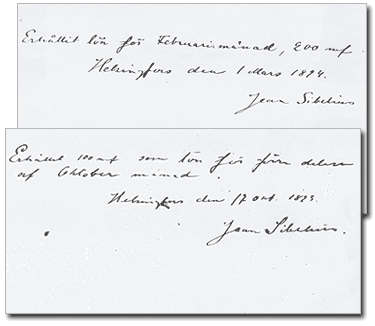 Erhållit lön för Februarimånad, 200 mf
Helsingfors den 1 Mars 1894.
Jean Sibelius
Erhållit 100 mf som lön för förra delen
af Oktober månad.
Helsingfors den 17 okt. 1893.
Jean Sibelius.